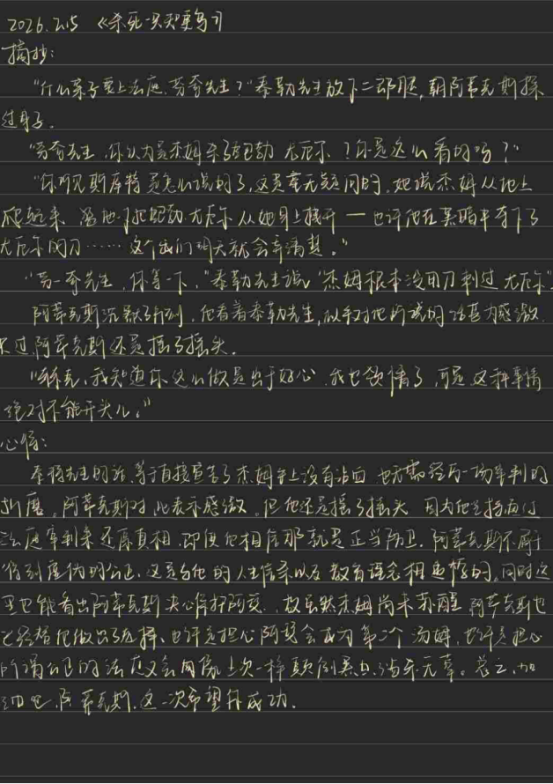 2026.2.15 《杀死一只知更鸟》
摘抄:
"什么案子要上法庭,芬奇先生?"泰勒先生放下二郎腿,朝阿蒂克斯探
过身子。
"芬奇先生,你认为是杰姆杀了鲍勃·尤厄尔?你是这么看的吗?"
"你听见斯库特是怎么说的了,这是毫无疑问的,她说杰姆从地上
爬起来,当他把鲍勃·尤厄尔从她身上拽开——也许他在黑暗中夺下了
尤厄尔的刀……这个我们明天就会弄清楚。"
"芬-奇先生,你等一下,"泰勒先生说,"杰姆根本没用刀刺过尤厄尔"
阿蒂克斯沉默了片刻,他看着泰勒先生,似乎对他所说的话甚为感激
过,阿蒂克斯还是摇了摇头。
"赫克,我知道你这么做是出于好心,我也领情了,可是,这种事情
绝对不能开头儿。"
心得:
先生的话,等于直接宣告了杰姆 没有 也 经历一场审判的
折磨,阿蒂克斯对此表示感激,但他还是摇了摇头,因为他 通过
法庭审判来还原真相,即使他相信那就是正当防卫,阿蒂克斯不屑
得到虚伪的公正,这是与他的人生信条以及教育理念相违悖的,同时这
里也能看出阿蒂克斯 故虽然杰姆尚未苏醒,阿蒂克斯也
已经替他做出了选择,也许是担心 会成为第二个汤姆,也许是担心
所谓公正的法庭又会同上次一样颠倒黑白,诬 无辜。总之,加
油吧,阿蒂克斯,这一次希望你成功.